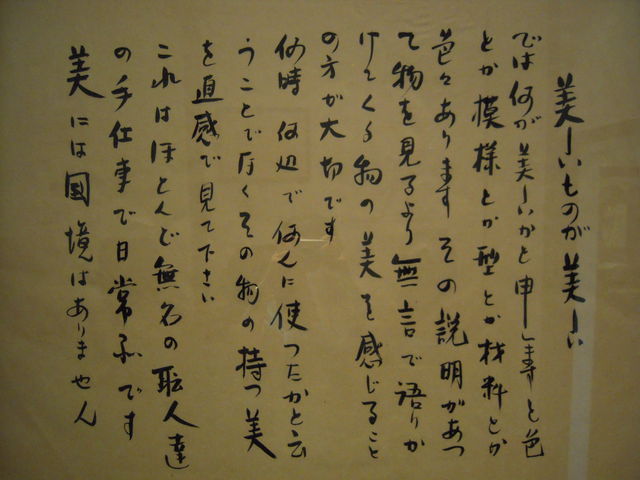 美しいものが美しい
では何が美しいかと申し事と色
とか模様とか型とか材料とか
色々あります その説明があつ
て物を見るより無言で語りか
けてくる物の美を感じること
の方が大切です
何時 何処で何んに使つたかと云
うことで尽くその物の持つ美
を直感で見て下さい
これはほとんど無名の職人達
の手仕事で日常品です
美には国境はありません